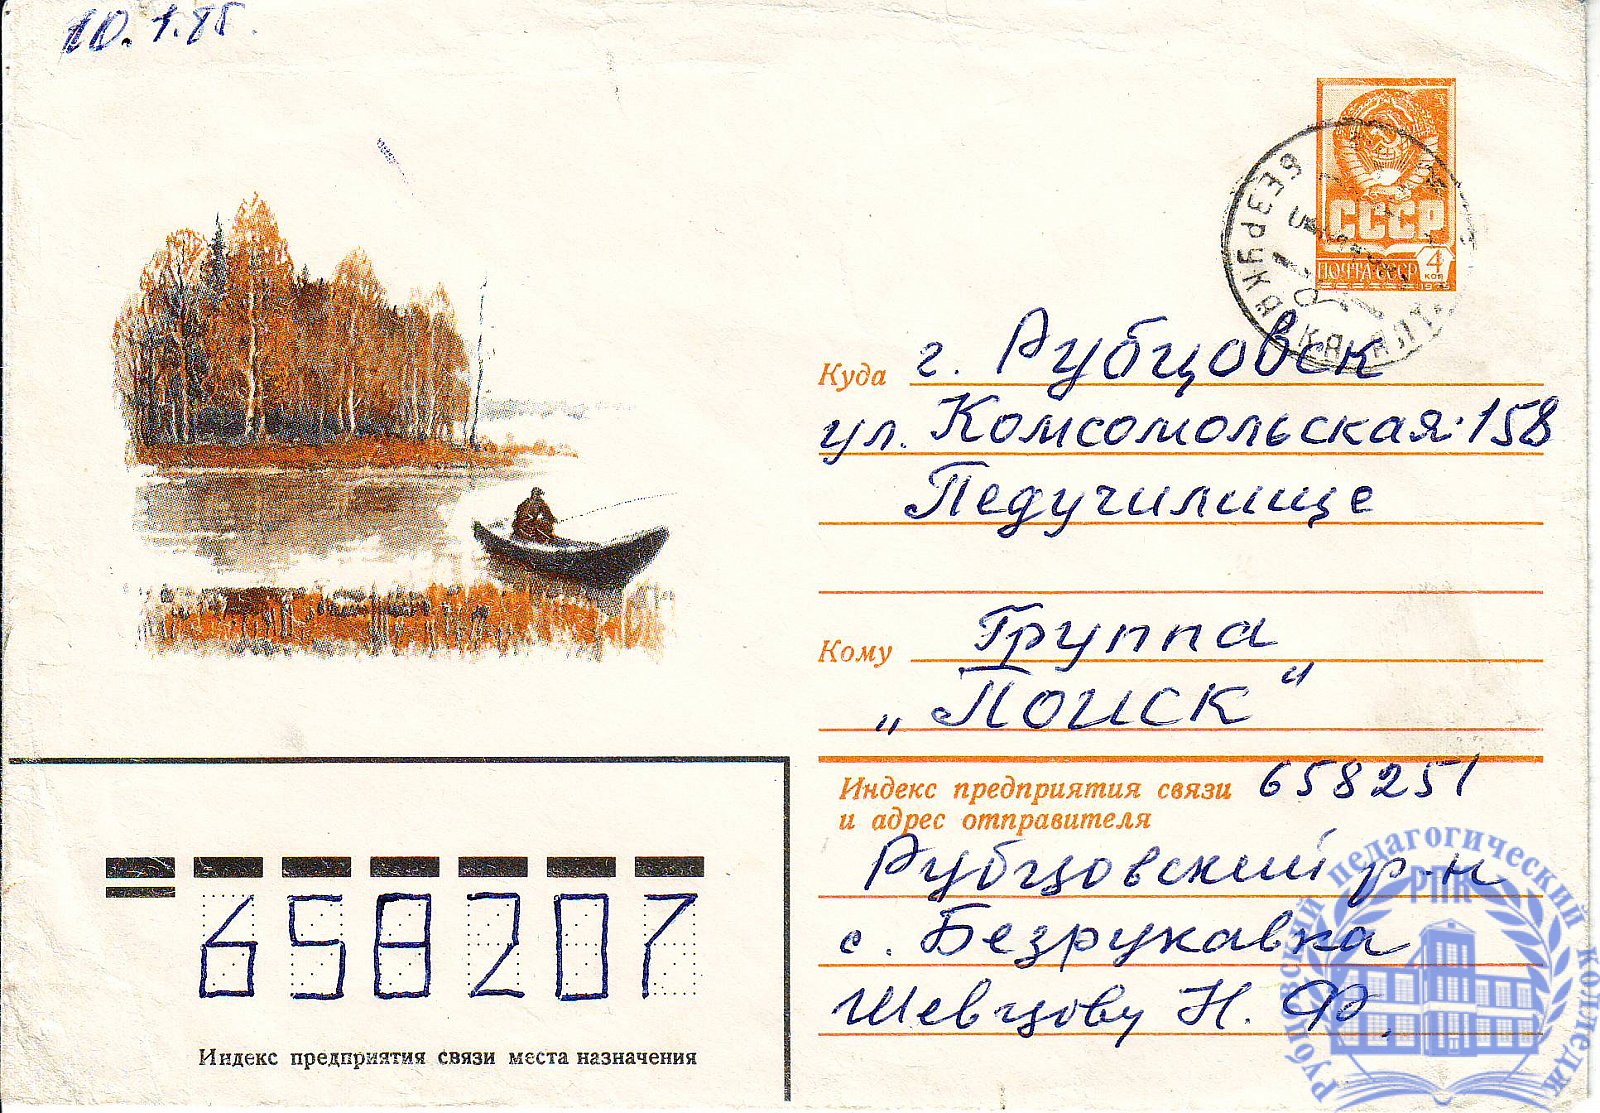 10.1.85.
СССР
ПОЧТА СССР
4
КОП
БЕЗРУКАВКА АЛТ.
Куда г. Рубцовск
ул. Комсомольская 158
Педучилище
Кому Группа
„Поиск“
Индекс предприятия связи 658251
и адрес отправителя
Рубцовский р-н
с. Безрукавка
Шевцову Н. Ф.
658207
Индекс предприятия связи места назначения
Рубцовский педагогический колледж
РПК